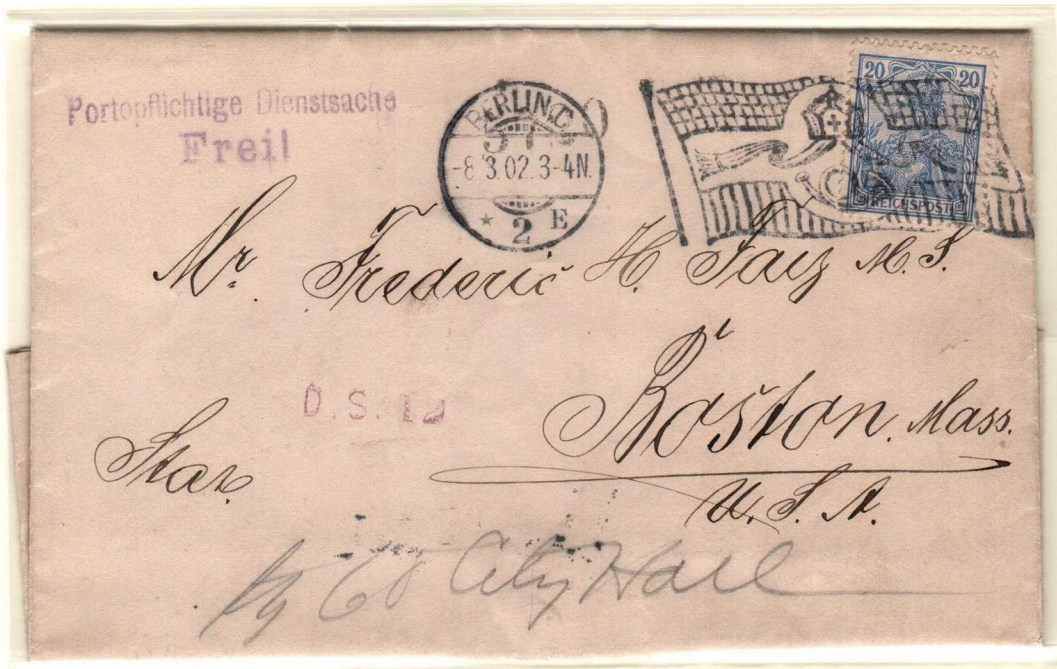 Portopflichtige Dienstsache
Frei!
BERLIN.C.
-8.3.02.3-4N.
* 2 E
20 20
REICHSPOST
Mr. Frederic H.
D. S. 12
Boston. Mass.
U. S. A.
City Hall